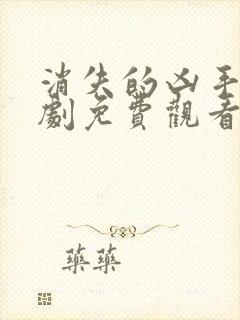 消失的凶手
劇免費觀看
藥藥